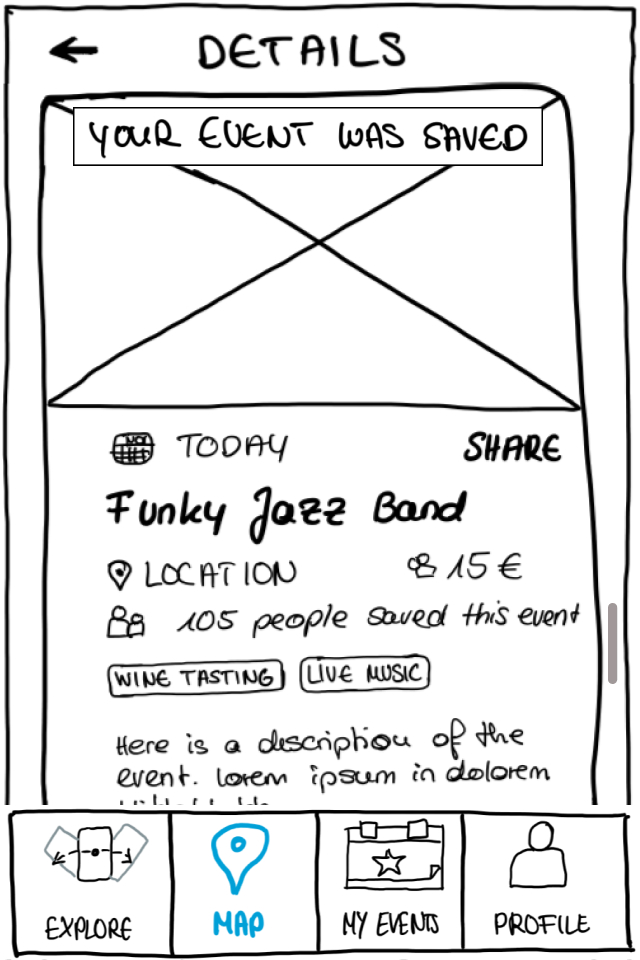 DETAILS
YOUR EVENT WAS SAVED
TODAY SHARE
Funky Jazz Band
LOCATION 15 €
105 people saved this event
WINE TASTING LIVE MUSIC
Here is a description of the
event. lorem ipsum in dolorem
EXPLORE MAP MY EVENTS PROFILE